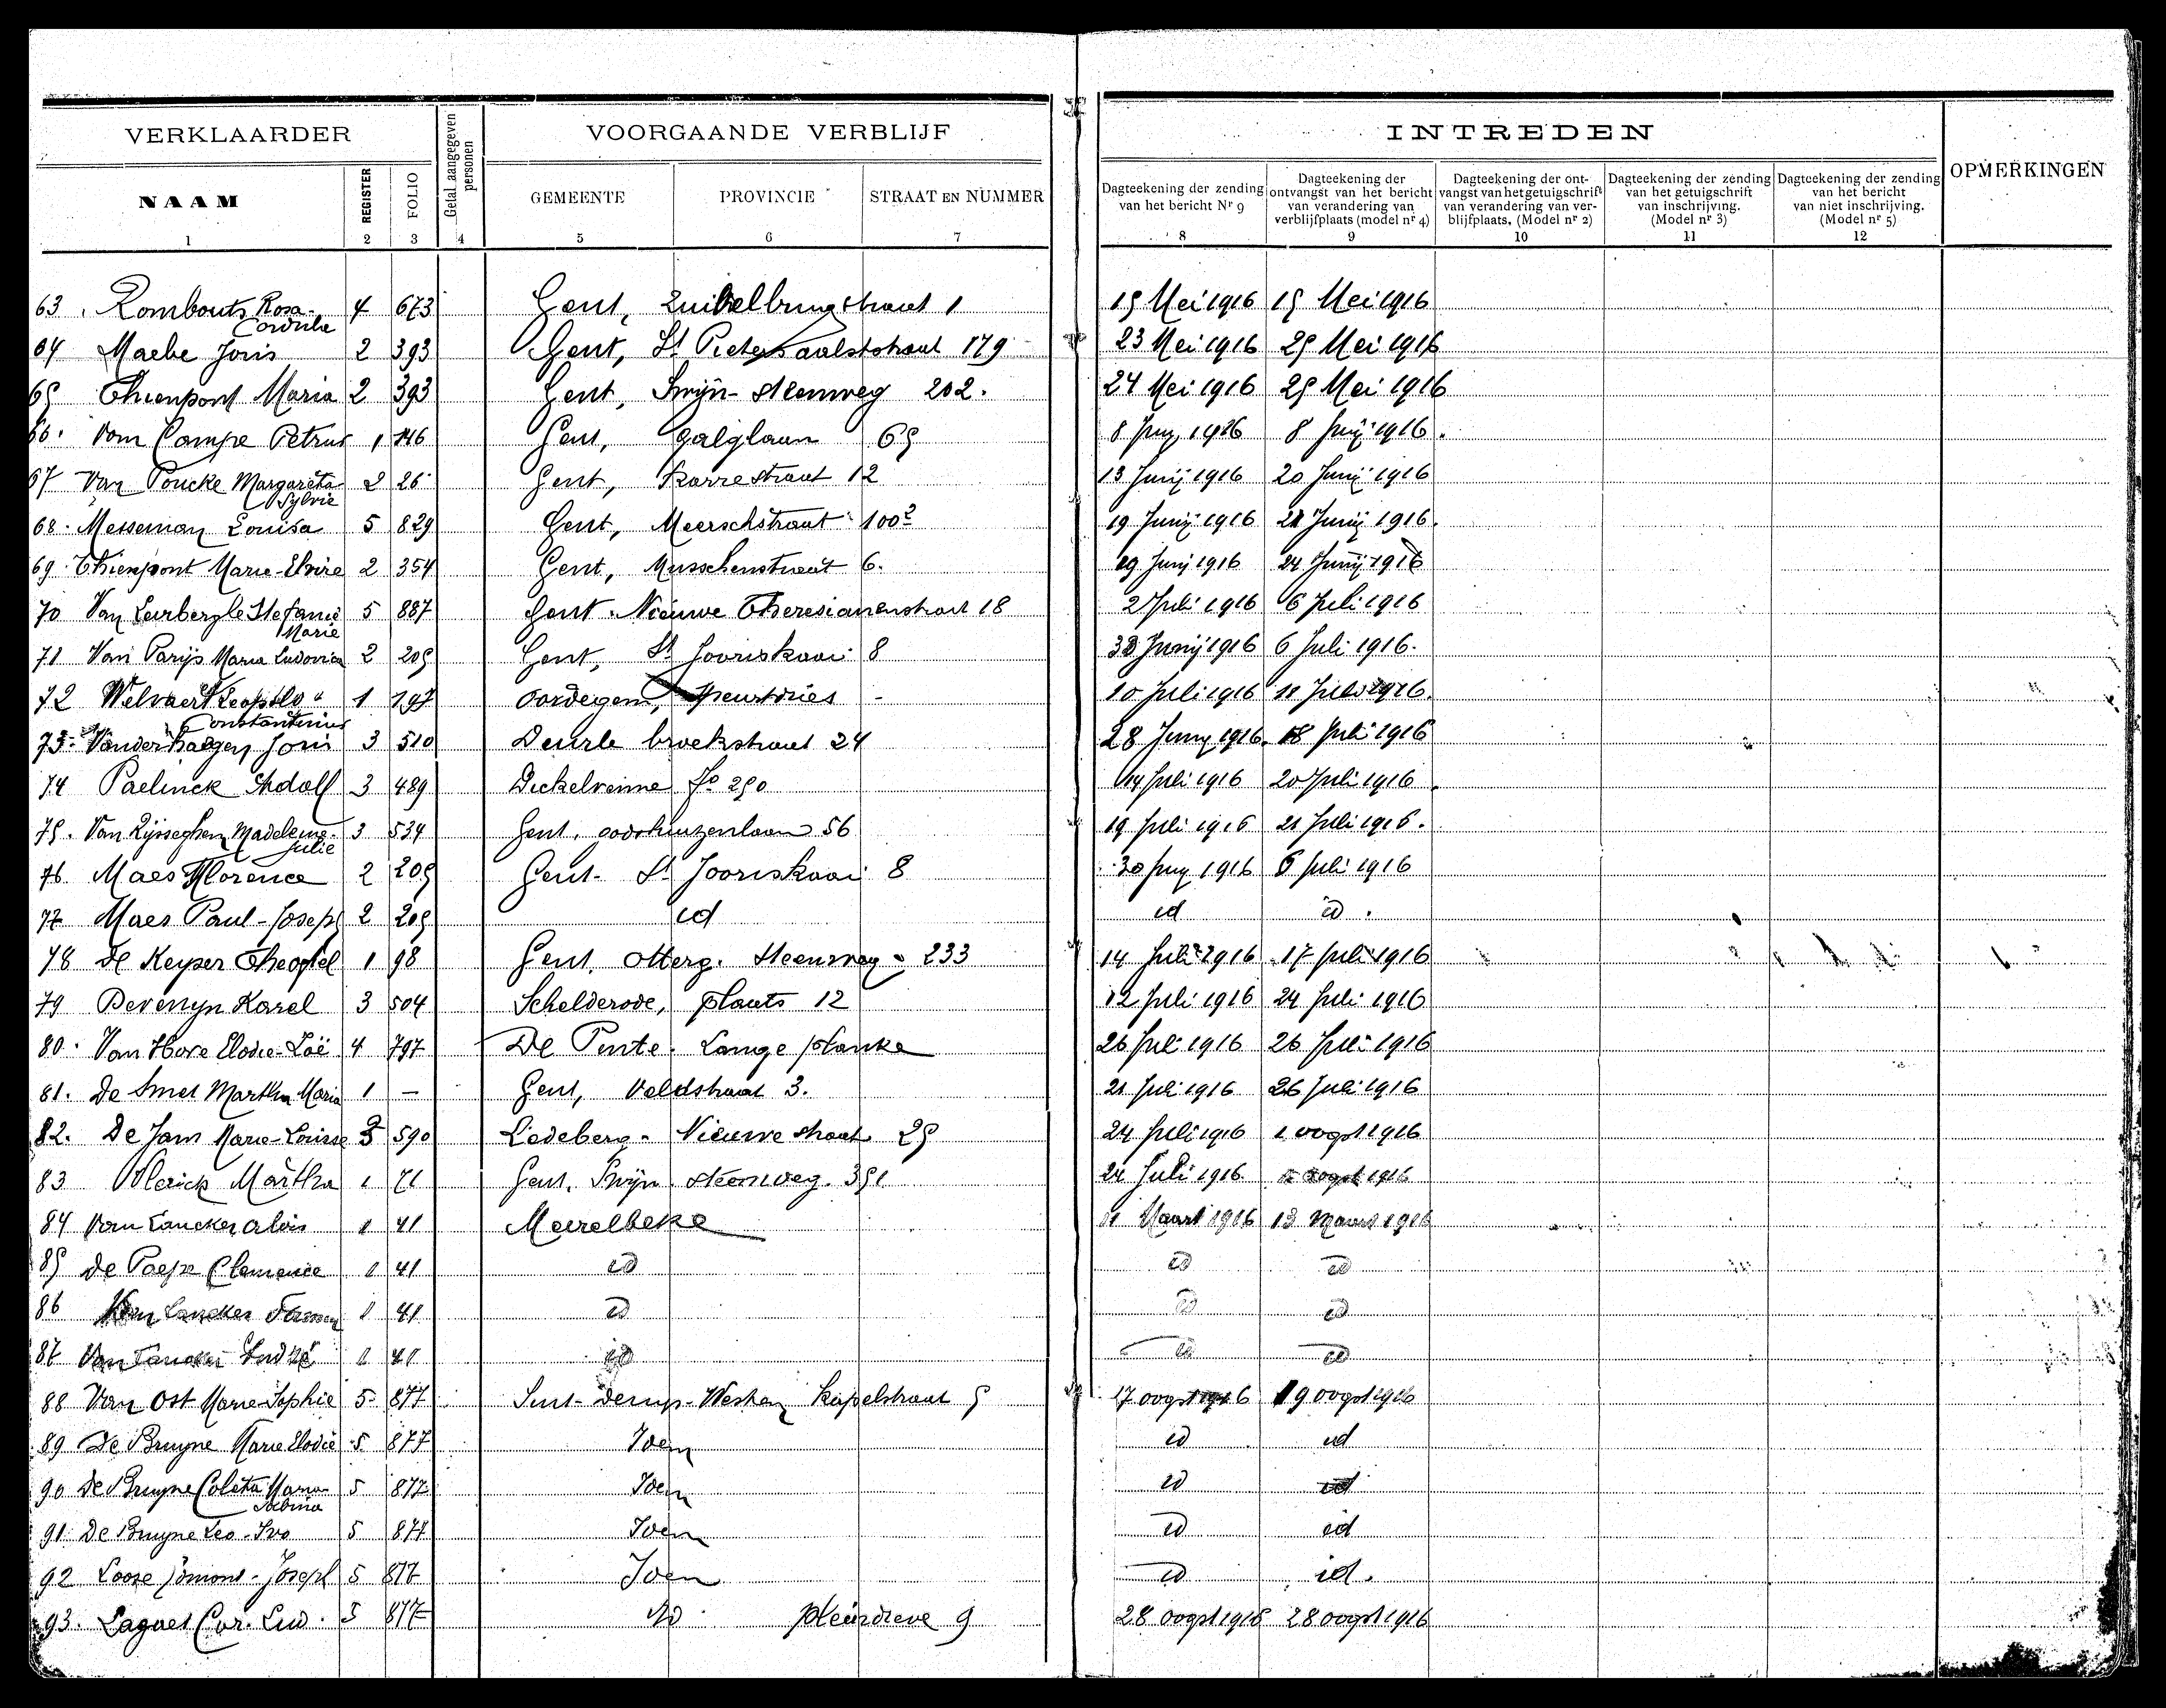 VERKLAARDER
Getal aangegeven personen
VOORGAANDE VERBLIJF
INTREDEN
OPMERKINGEN
NAAM
REGISTER
FOLIO
GEMEENTE
PROVINCIE
STRAAT EN NUMMER
Dagteekening der zending van het bericht Nr 9
Dagteekening der ontvangst van het bericht van verandering van verblijfplaats (model nr 4)
Dagteekening der ontvangst van het getuigschrift van verandering van verblijfplaats. (Model nr 2)
Dagteekening der zending van het getuigschrift van inschrijving. (Model nr 3)
Dagteekening der zending van het bericht van niet inschrijving. (Model nr 5)
1 2 3 4 5 6 7 8 9 10 11 12
63 Rombouts Rosa Cordula 4 673 Gent, 1 15 Mei 1916 15 Mei 1916
64 Maebe Joris 2 393 Gent, St Pietersaalststraat 179 23 Mei 1916 25 Mei 1916
65 Thienpont Maria 2 393 Gent, Swijn-steenweg 202. 24 Mei 1916 25 Mei 1916
66. Van Campe Petrus 1 146 Gent, galglaan 65 8 Juny 1916 8 Junij 1916.
67 Van Poucke Margareta Sylvie 2 26 Gent, Karrestraat 12 13 Junij 1916 20 Junij 1916
68. Messeman Louisa 5 829 Gent, Meerschstraat 100² 19 Junij 1916 21 Junij 1916.
69. Thienpont Marie-Elvire 2 354 Gent, Musschenstraat 6. 19 Junij 1916 24 Junij 1916
70 Van Leirberghe Stefanie Marie 5 887 Gent. Nieuwe Theresianenstraat 18 2 Juli 1916 6 Juli 1916
71 Van Parijs Maria Ludovica 2 205 Gent, St Jooriskaai 8 30 Junij 1916 6 Juli 1916.
72 Welvaert Leopold Constantinus 1 197 Oordegem, - 10 Juli 1916 11 Juli 1916.
73. Vanderhaegen Joris 3 510 Deurle broekstraat 24 28 Juny 1916. 18 Juli 1916
74 Paelinck Adolf 3 489 Dickelvenne fo 250 14 Juli 1916 20 Juli 1916
75. Van Rijsseghem Madeleine Julie 3 534 Gent. 56 19 Juli 1916 21 Juli 1916.
76 Maes Florence 2 205 Gent- St Jooriskaai 8 30 Juny 1916 6 Juli 1916
77 Maes Paul-Joseph 2 205 id id id.
78 De Keyser Theofiel 1 98 Gent. Otterg. Steenweg 233 14 Juli 1916 17 Juli 1916
79 Bevernyn Karel 3 504 Schelderode, plaats 12 12 Juli 1916 24 Juli 1916
80. Van Hove Elodie-Zoë 4 797 De Pinte. Lange planke 26 Juli 1916 26 Juli 1916
81. De Smet Martha Maria 1 - Gent, Veldstraat 3. 21 Juli 1916 26 Juli 1916
82. De Jans Marie-Louise 3 590 Ledeberg- Nieuwe straat 25 24 Juli 1916 1 oogst 1916
83 Vlerick Martha 1 71 Gent. Swijn steenweg. 351 24 Juli 1916 oogst 1916
84 Van Lancker Alois 1 41 Meirelbeke 11 Maart 1916 13 Maart 1916
85 De Paepe Clemence 1 41 id id id
86 Van Lancker 1 41 id id id
87 Van Lancker André 1 41 id id id
88 Van Ost Marie-Sophie 5 877 Sint-Denys-Westrem Kapelstraat 5 17 oogst 1916 19 oogst 1916
89 De Bruyne Marie Elodie 5 877 Idem id id
90 De Bruyne Coleta Maria Sabina 5 877 Idem id id
91 De Bruyne Leo-Ivo 5 877 Idem id id
92 Loose Edmond-Joseph 5 877 Idem id id.
93. Cor. Lud. 5 877 id 9 28 oogst 1916 28 oogst 1916